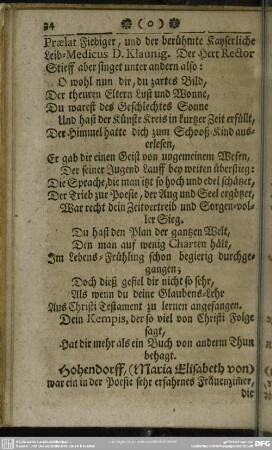 34 (o)
Prælat Fiebiger, und der berühmte Kayserliche
Leib-Medicus D. Klaunig. Der Herr Rector
Stieff aber singet unter andern also:
O wohl nun dir, du zartes Bild,
Der theuren Eltern Lust und Wonne,
Du warest des Geschlechtes Sonne
Und hast der Künste Kreis in kurtzer Zeit erfüllt,
Der Himmel hatte dich zum Schooß-Kind aus-
erlesen,
Er gab dir einen Geist von ungemeinem Wesen,
Der seiner Jugend Lauff bey weiten überstieg:
Die Sprache, die man itzt so hoch und edel schätzet,
Der Trieb zur Poesie, der Aug und Seel ergötzet,
War recht dein Zeitvertreib und Sorgen-vol-
ler Sieg.
Du hast den Plan der gantzen Welt,
Den man auf wenig Charten hält,
Im Lebens-Frühling schon begierig durchge-
gangen;
Doch dieß gefiel dir nicht so sehr,
Als wenn du deine Glaubens-Lehr
Aus Christi Testament zu lernen angefangen.
Dein Kempis, der so viel von Christi Folge
sagt,
Hat dir mehr als ein Buch von anderm Thun
behagt.
Hohendorff, (Maria Elisabeth von)
war ein in der Poesie sehr erfahrnes Frauenzimmer,
die